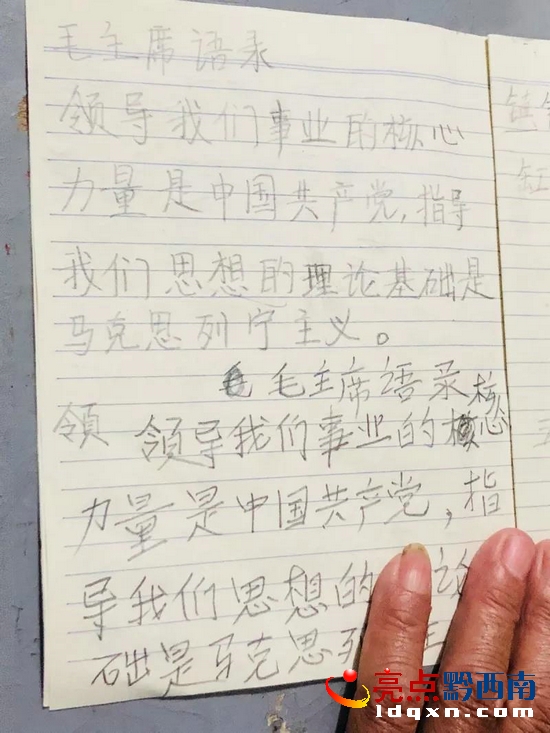 毛主席语录
领导我们事业的核心
力量是中国共产党,指导
我们思想的理论基础是
马克思列宁主义。
毛主席语录
领 领导我们事业的核心
力量是中国共产党,指
导我们思想的 论
础是马克思列
镇
缸
亮点黔西南
ldqxn.com